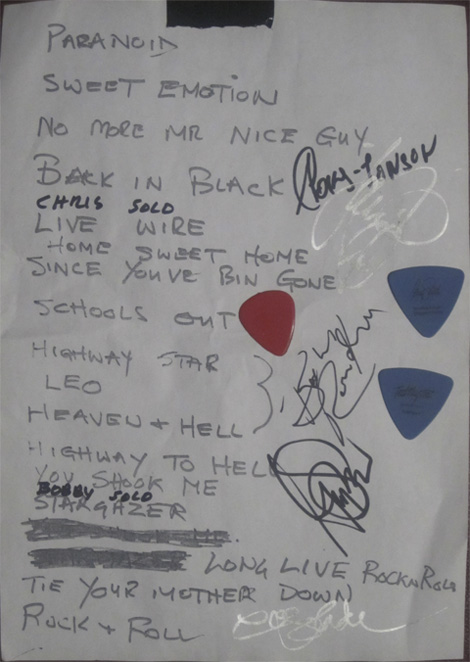 PARANOID
SWEET EMOTION
NO MORE MR NICE GUY
BACK IN BLACK
CHRIS SOLO
LIVE WIRE
HOME SWEET HOME
SINCE YOU'VE BIN GONE
SCHOOLS OUT
HIGHWAY STAR
LEO
HEAVEN + HELL
HIGHWAY TO HELL
YOU SHOOK ME
BOBBY SOLO
STARGAZER
LONG LIVE ROCK N ROLL
TIE YOUR MOTHER DOWN
ROCK + ROLL